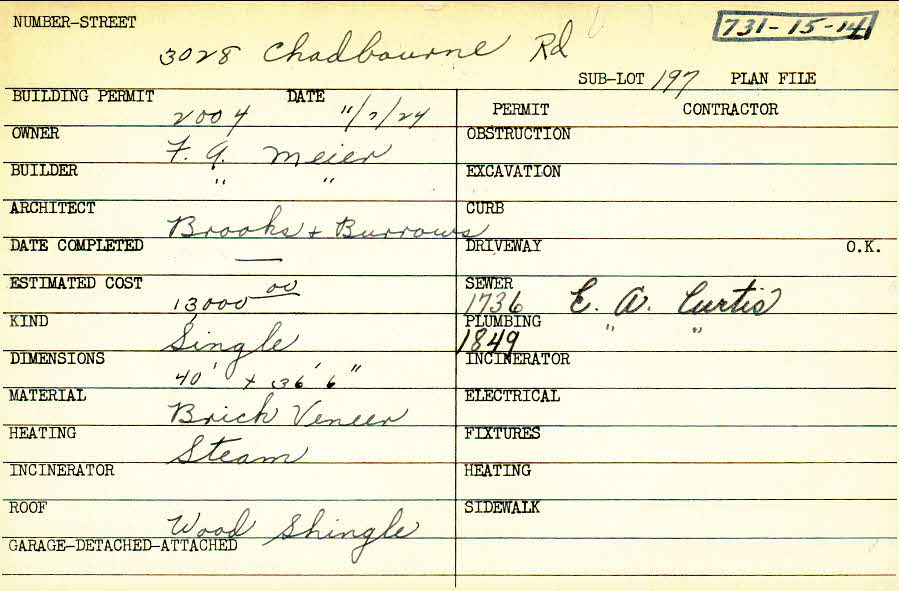 NUMBER-STREET
731-15-14
3028 Chadbourne Rd
SUB-LOT 197 PLAN FILE
BUILDING PERMIT 2004 DATE 11/7/24
PERMIT CONTRACTOR
OWNER F. A. Meier
OBSTRUCTION
BUILDER " "
EXCAVATION
ARCHITECT Brooks + Burrows
CURB
DATE COMPLETED —
DRIVEWAY O.K.
ESTIMATED COST 13000 00
SEWER 1736 E. A. Curtis
KIND Single
PLUMBING 1849 " "
DIMENSIONS 40' x 36' 6"
INCINERATOR
MATERIAL Brick Veneer
ELECTRICAL
HEATING Steam
FIXTURES
INCINERATOR
HEATING
ROOF Wood Shingle
SIDEWALK
GARAGE-DETACHED-ATTACHED